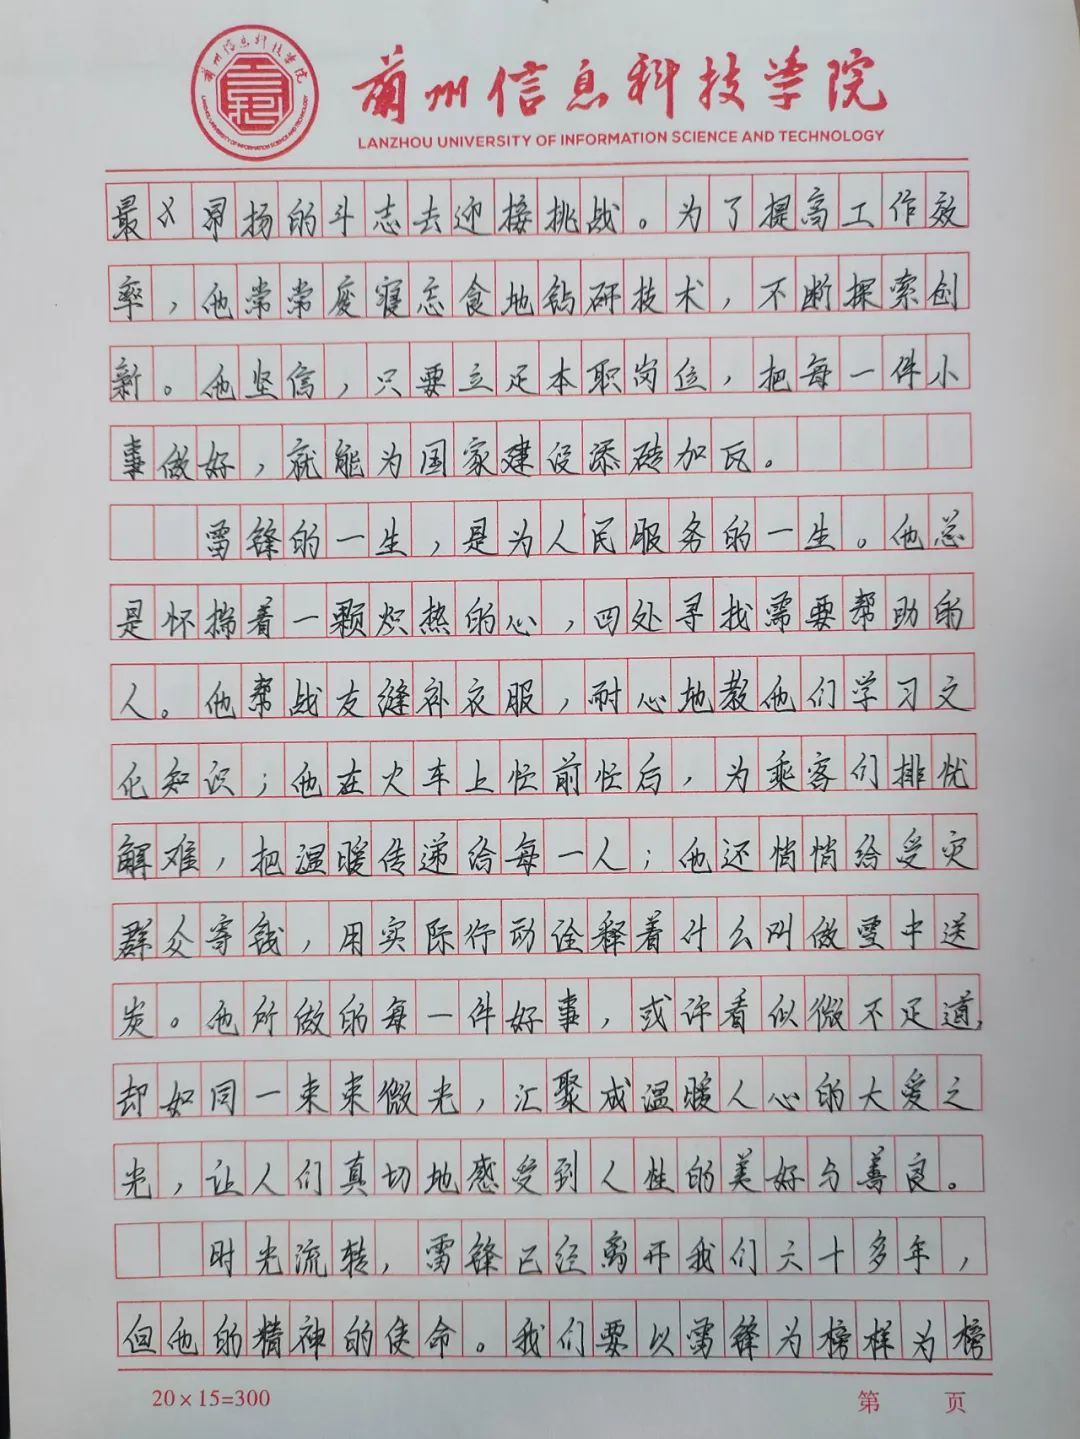 兰州信息科技学院
兰州信息科技学院
LANZHOU UNIVERSITY OF INFORMATION SCIENCE AND TECHNOLOGY
LANZHOU UNIVERSITY OF INFORMATION SCIENCE AND TECHNOLOGY
最以昂扬的斗志去迎接挑战。为了提高工作效
率，他常常废寝忘食地钻研技术，不断探索创
新。他坚信，只要立足本职岗位，把每一件小
事做好，就能为国家建设添砖加瓦。
雷锋的一生，是为人民服务的一生。他总
是怀揣着一颗炽热的心，四处寻找需要帮助的
人。他帮战友缝补衣服，耐心地教他们学习文
化知识；他在火车上忙前忙后，为乘客们排忧
解难，把温暖传递给每一人；他还悄悄给受灾
群众寄钱，用实际行动诠释着什么叫做雪中送
炭。他所做的每一件好事，或许看似微不足道，
却如同一束束微光，汇聚成温暖人心的大爱之
光，让人们真切地感受到人性的美好与善良。
时光流转，雷锋已经离开我们六十多年，
但他的精神的使命。我们要以雷锋为榜样为榜
20×15=300
第 页